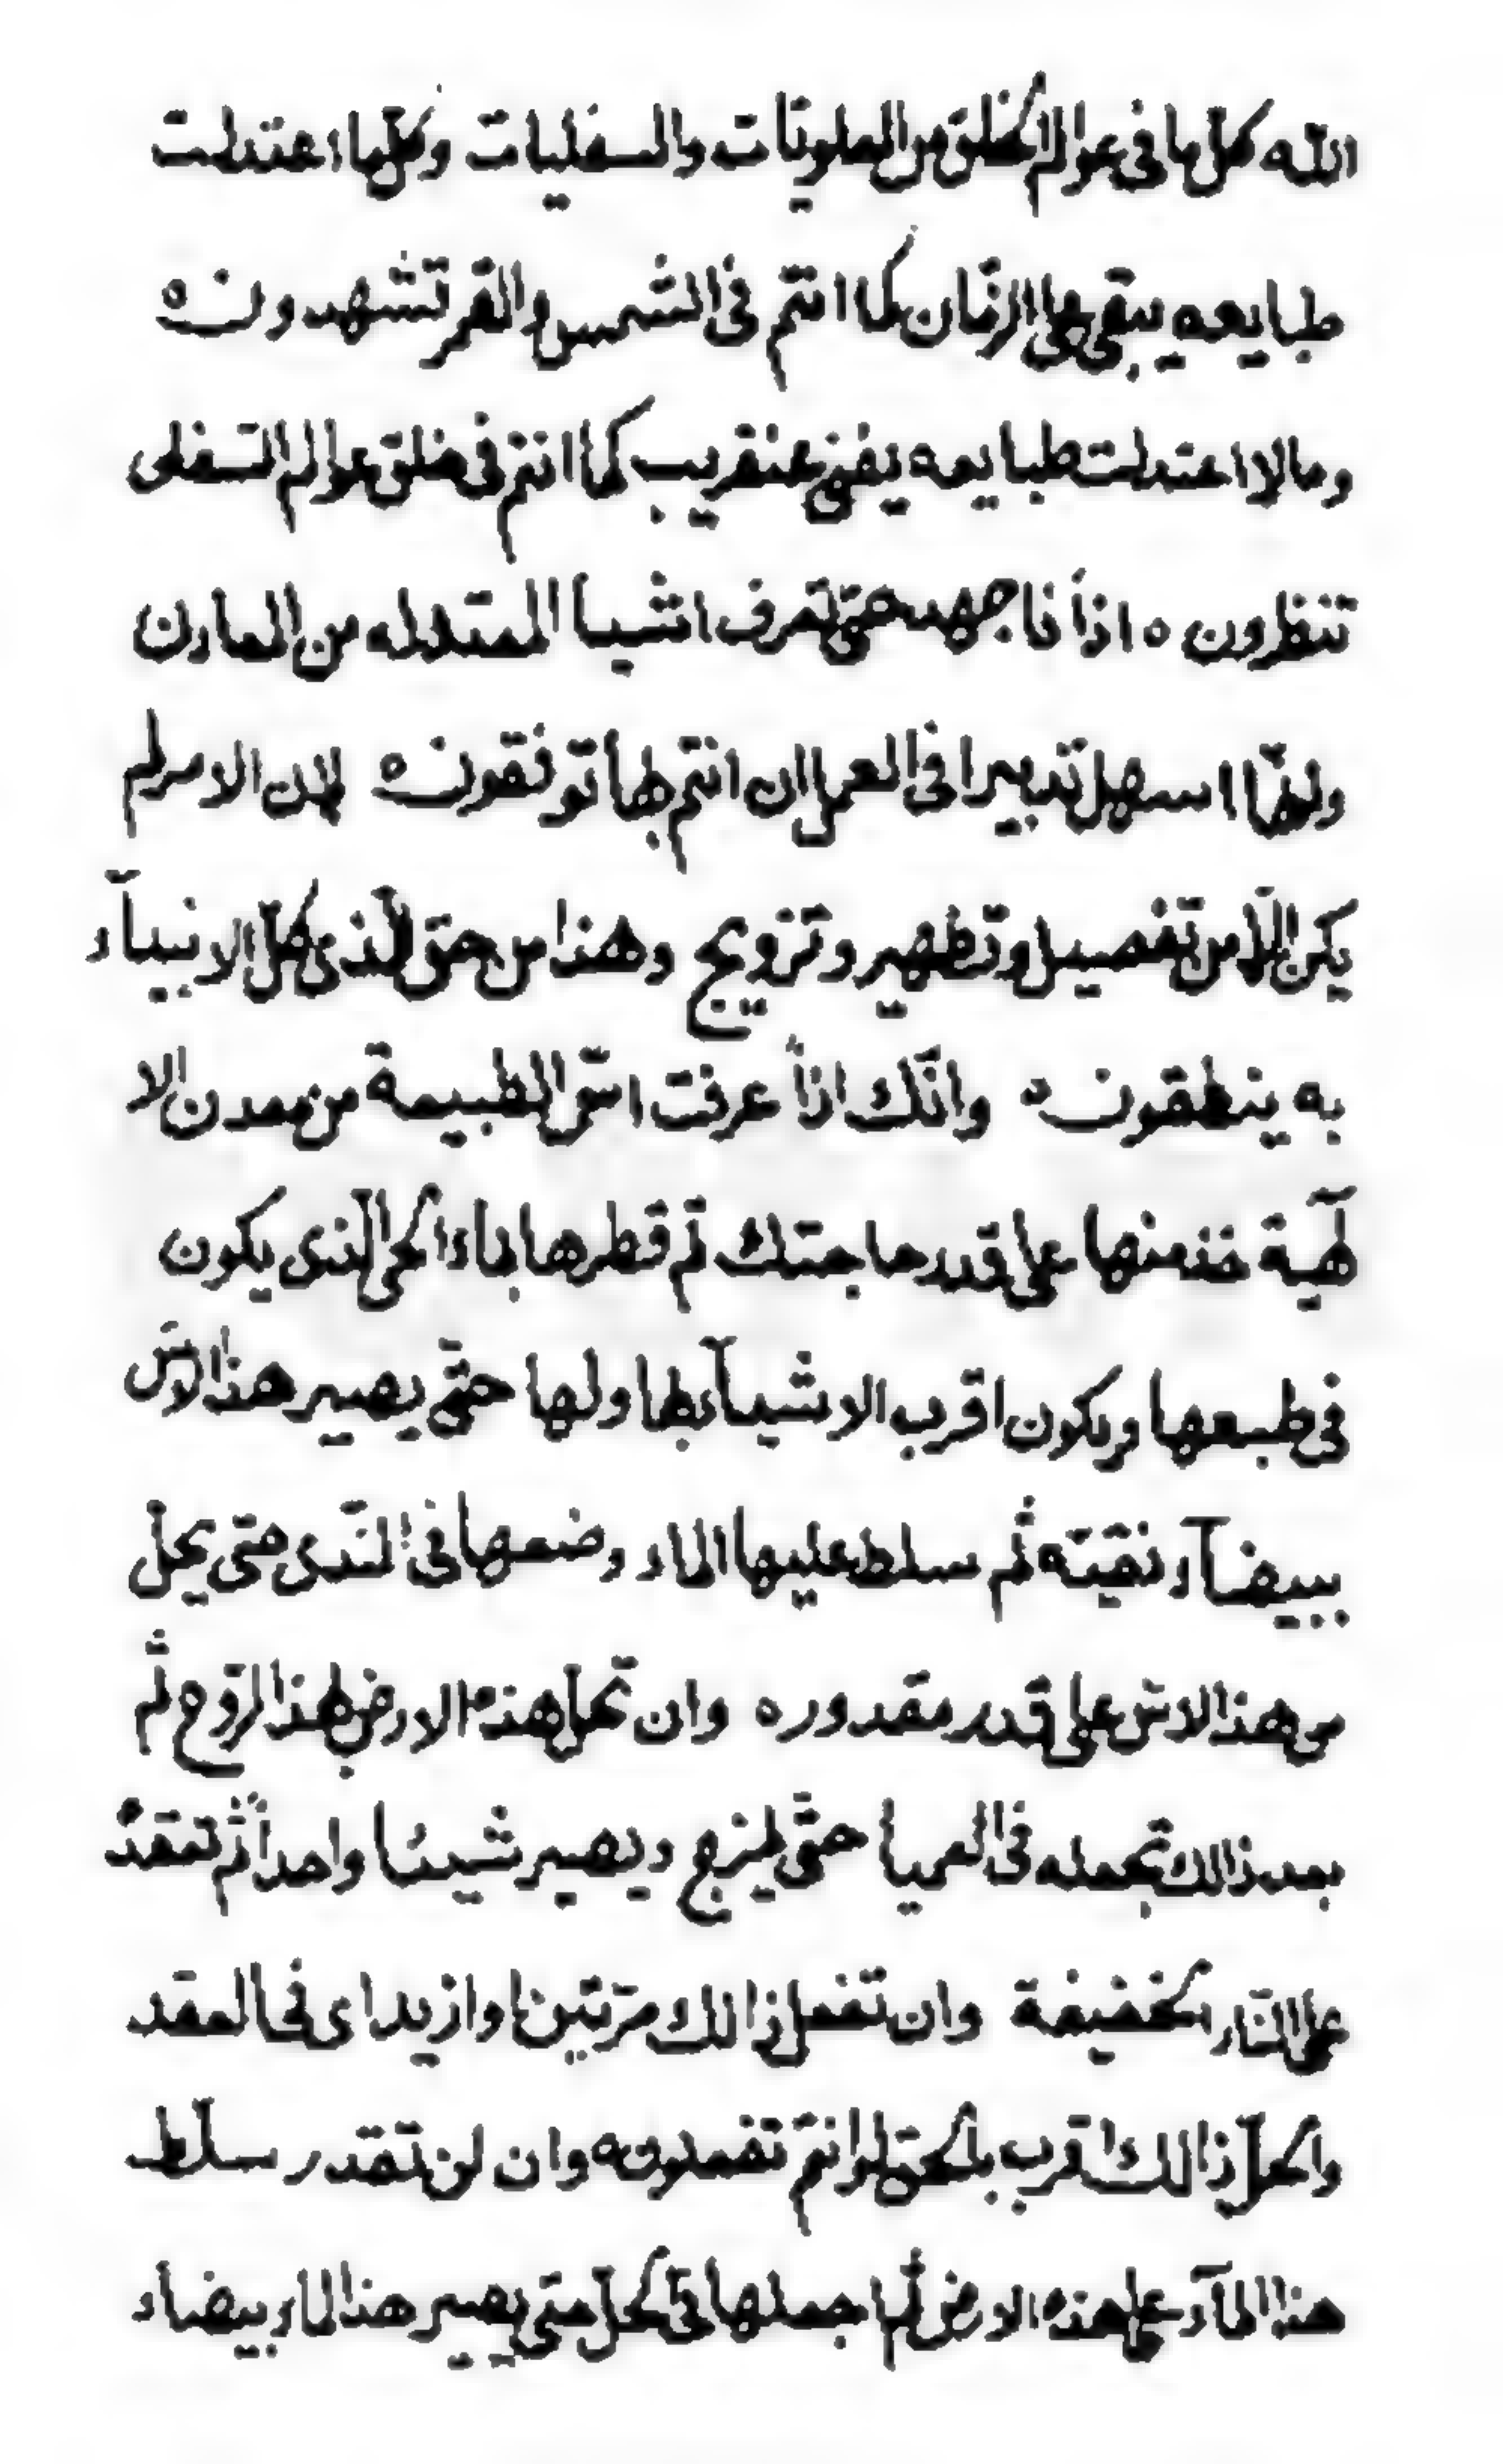 الله كلّ ما فى عوالم الخلق من العلويّات والسفليات وكلّما اعتدلت
طبايعه يبقى على الزمّان كما انتم فى الشمس والقمر تشهدون ه
وما لا اعتدلت طبايعه يفنى عنقريب كما انتم فى خلق عوالم السّفلى
تنظرون ه اذاً فاجهد حتّى تعرف اشيا المعتدله من المعادن
ولهّا اسهل تدبيرا فى العمل ان انتم بها توفقون ه لان الامر لم
يكن الّا من تفصيل وتطهير وتزويج وهذا من حق الّذى كلّ الانبيآء
به ينطقون ه وانّك اذاً عرفت اسّ الطبيعة من معدن الا
لٓهية خذ منها على قدر حاجتك ثم قطرها بماء الحى الّذى يكون
فى طبعها ويكون اقرب الاشيآء بها ولها حتّى يصير هذا الاسّ
بيضآء نقيّه ثم سلط عليها الماء وضعها فى النّدى حتى يحلّ
من هذا الاسّ على قدر مقدوره وان تحلّ هذه الارض بهذا الرّوح ثم
بعد ذالك تجعله فى العميا حتّى يمزج ويصير شيئا واحداً ثم تعقده
على النّار الخفيفة وان تفعل ذالك مرّتين او ازيد اى فى العقد
والحلّ ذالك اقرب بالحقّ لو انتم تفعلونه وان لن تقدر سلّط
هذا المآء على هذه الارض ثم اجعلها فى الحلّ حتى يصير هذا الماء بيضاء